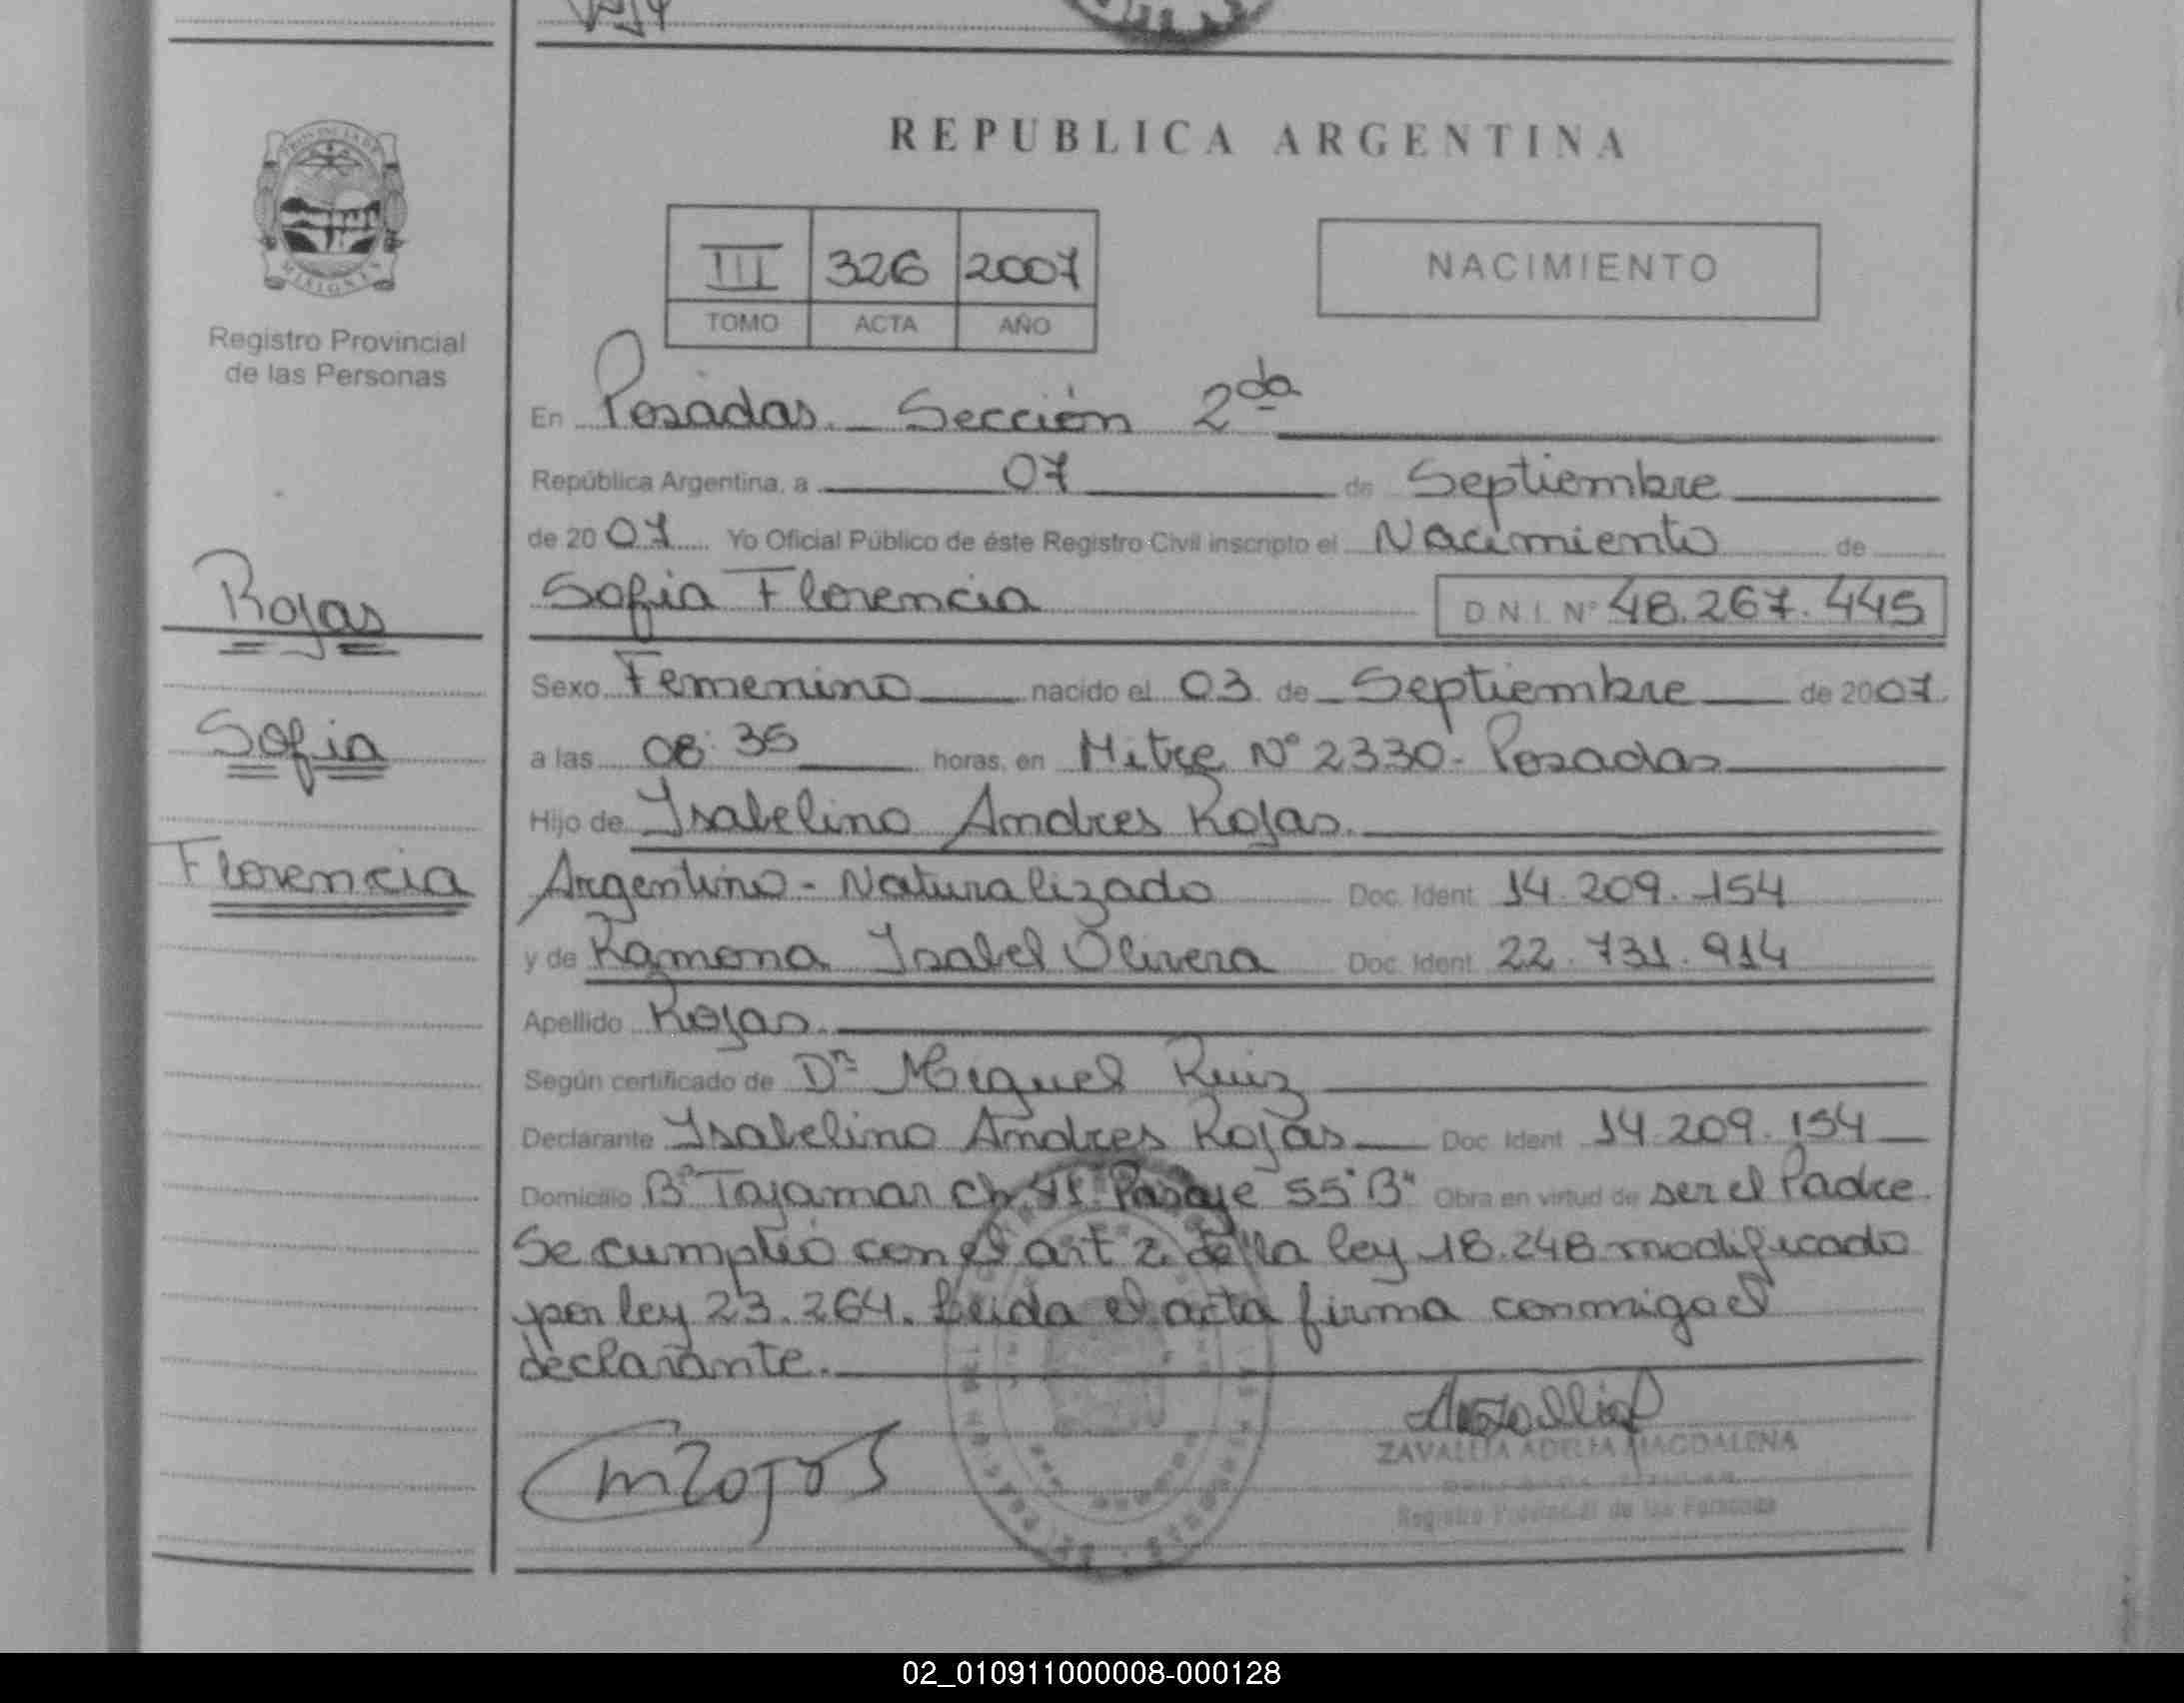 REPUBLICA ARGENTINA
PROVINCIA DE
MISIONES
Registro Provincial
de las Personas
III 326 2007
TOMO ACTA AÑO
NACIMIENTO
En Posadas - Sección 2da
República Argentina, a 07 de Septiembre
de 2007 Yo Oficial Público de éste Registro Civil inscripto el Nacimiento de
Sofia Florencia D.N.I. Nº 48.267.445
Rojas
Sofia
Florencia
Sexo Femenino nacido el 03 de Septiembre de 2007
a las 08:35 horas, en Mitre Nº 2330 - Posadas
Hijo de Isabelino Andres Rojas.
Argentino - Naturalizado Doc. Ident. 14.209.154
y de Ramona Isabel Olivera Doc. Ident. 22.731.914
Apellido Rojas.
Según certificado de Dr Miguel Ruiz
Declarante Isabelino Andres Rojas Doc. Ident. 14.209.154
Domicilio Bº Tajamar Ch Pasaje 55 "B" Obra en virtud de ser el Padre.
Se cumplió con el art 2 de la ley 18.248 modificado
por ley 23.264. Leida el acta firma conmigo el
declarante.
ZAVALLIA ADELIA MAGDALENA
Registro Provincial de las Personas
02_010911000008-000128